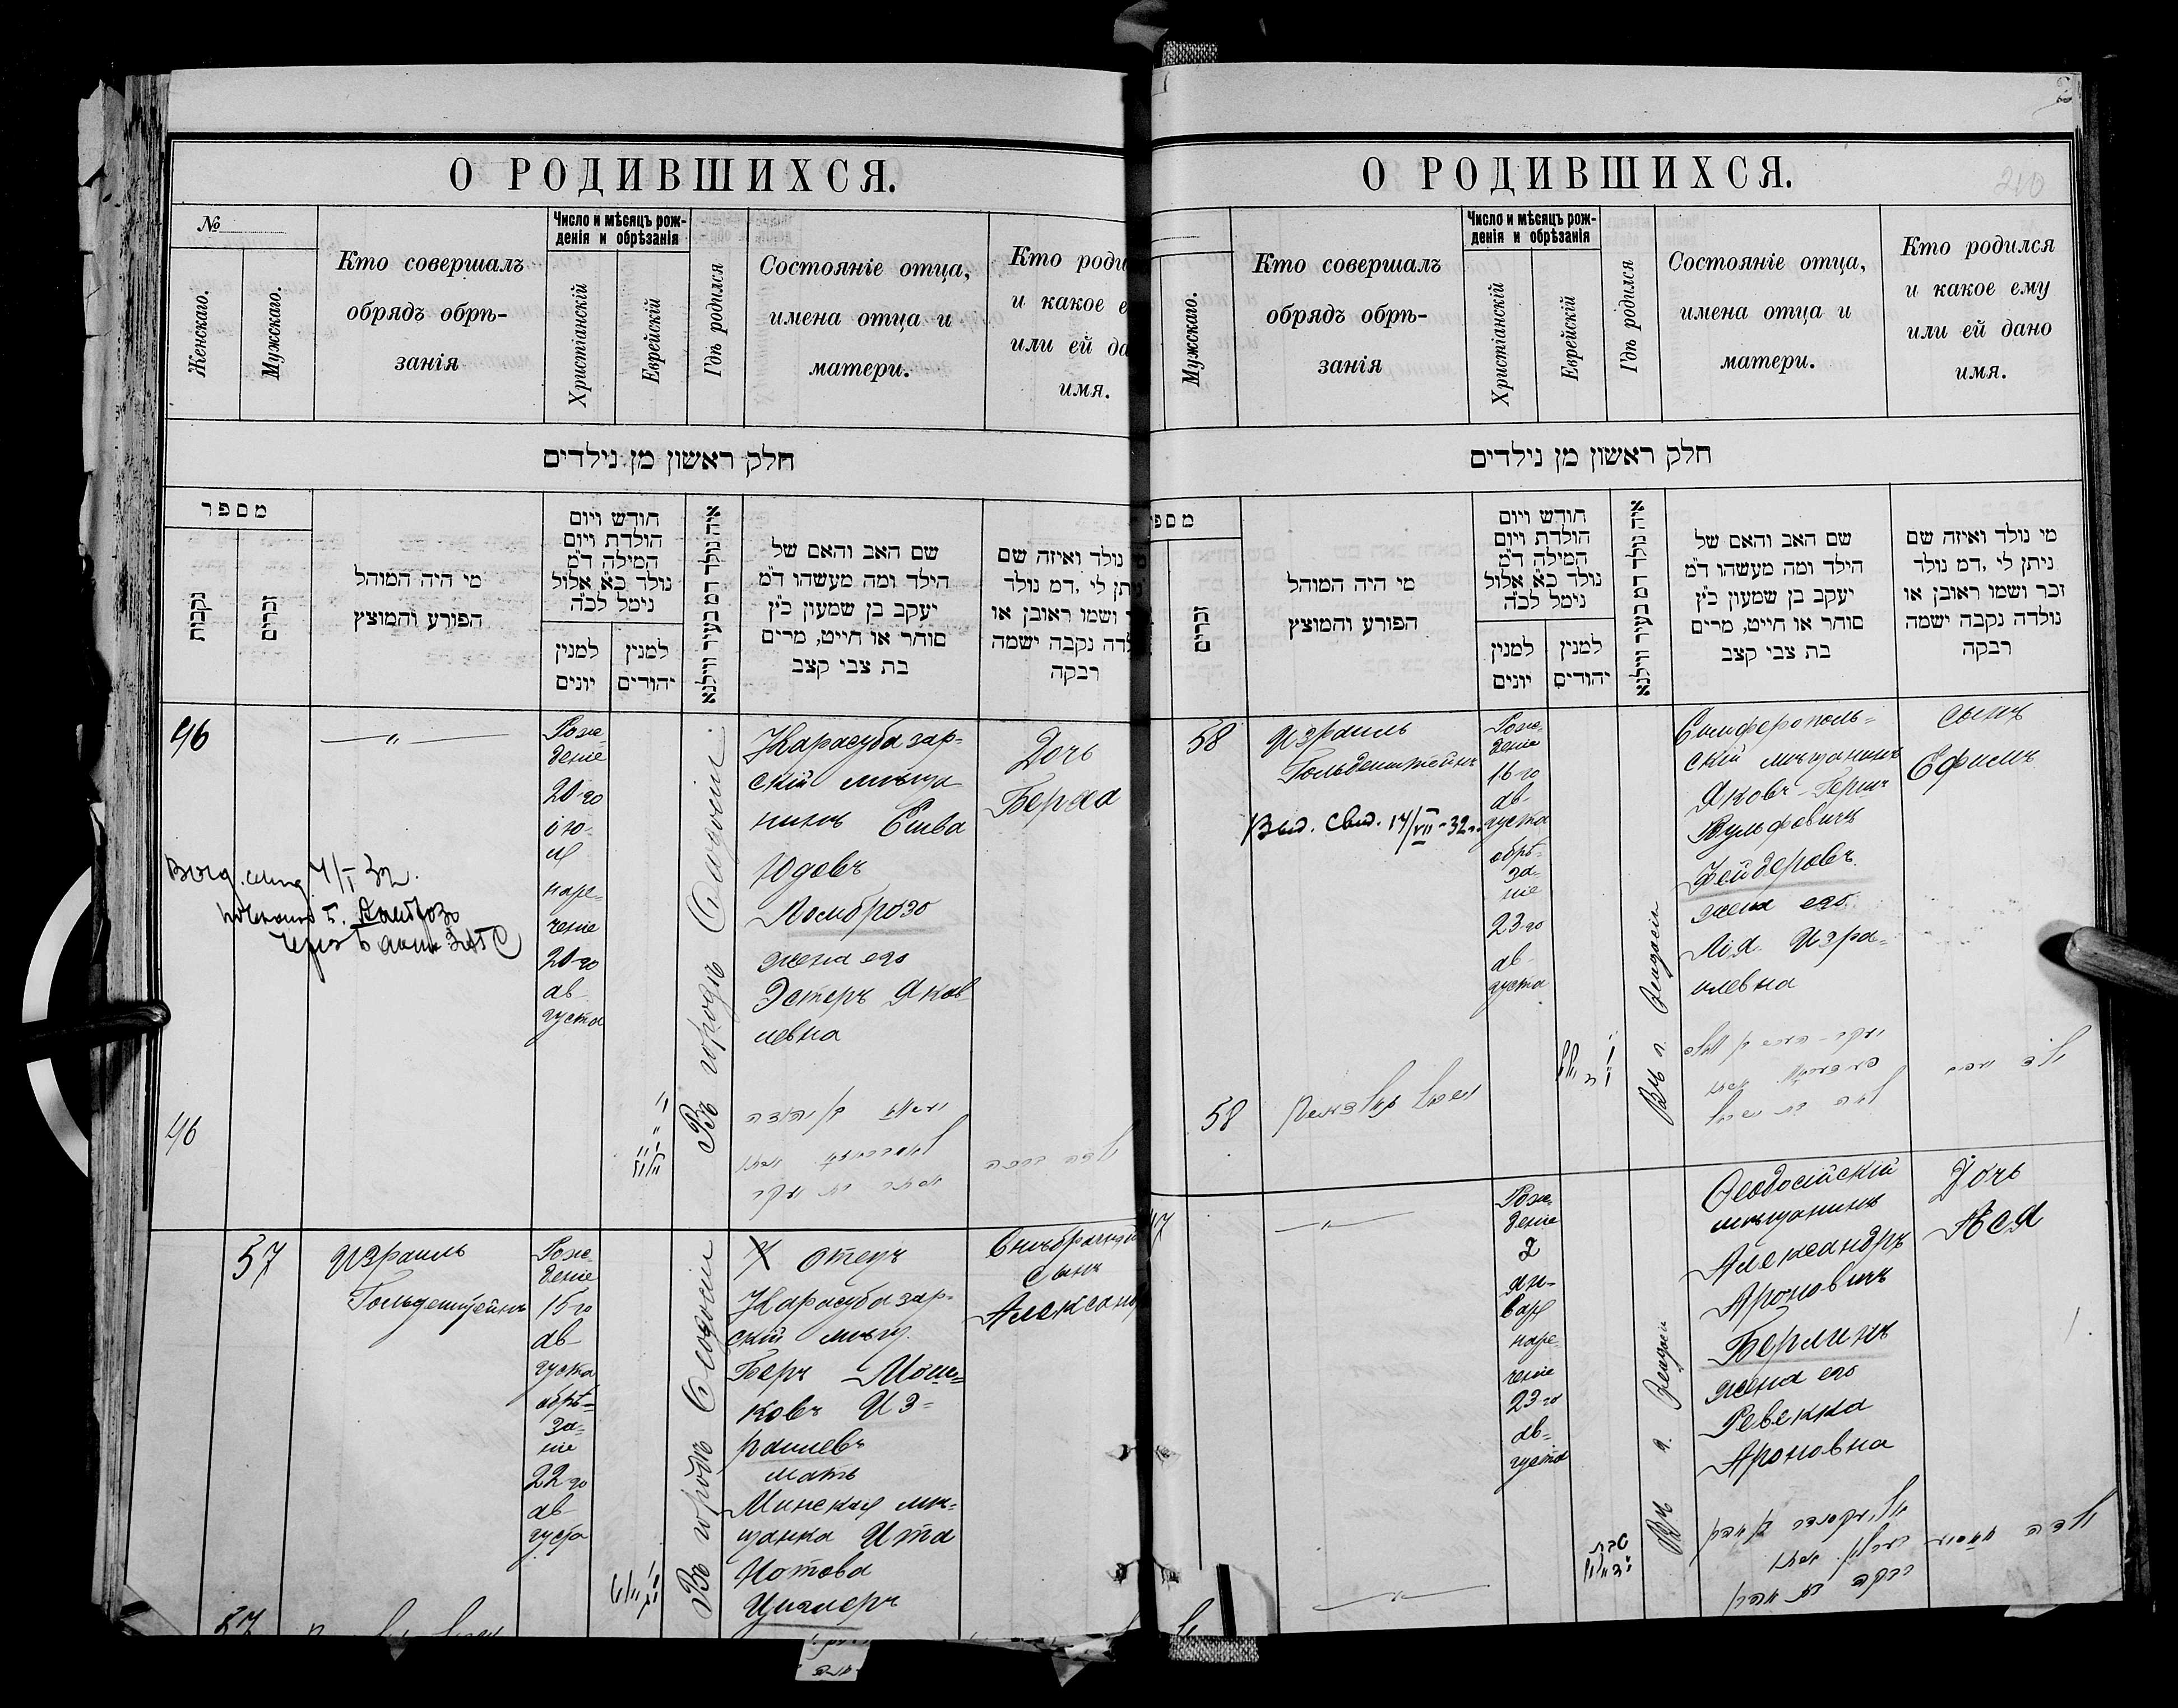 О РОДИВШИХСЯ.
№
Женскаго.
Мужскаго.
Кто совершалъ
обрядъ обрѣ-
занія
Число и мѣсяцъ рож-
денія и обрѣзанія
Христіанскій
Еврейскій
Гдѣ родился
Состояніе отца,
имена отца и
матери.
Кто роди
и какое е
или ей да
имя.
חלק ראשון מן נילדים
מספר
נקבות
זכרים
מי היה המוהל
הפורע והמוצץ
חודש ויום
הולדת ויום
המילה ד״מ
נולד כ״א אלול
נימל לכ״ה
למנין
יונים
למנין
יהודים
איה נולד דמ בעיר ווילנא
שם האב והאם של
הילד ומה מעשהו ד״מ
יעקב בן שמעון כ״ץ
סוחר או חייט, מרים
בת צבי קצב
נולד ואיזה שם
יתן לי ,דמ נולד
ושמו ראובן או
לדה נקבה ישמה
רבקה
46
— „ —
Рож-
деніе
20-го
ію-
ля
наре-
ченіе
20-го
ав-
густа
Въ городѣ Ѳеодосіи
Карасубазар-
скій мѣща
нинъ Ешва
Юдовъ
Ломброзо
жена его
Эстеръ Яков
левна
Дочь
Берха
46
57
Израиль
Гольденштейнъ
Рож-
деніе
15-го
ав-
густа
обрѣ-
за-
ніе
22-го
ав-
густа
Въ городѣ Ѳеодосіи
X отецъ
Карасубазар-
скій мѣщ.
Беръ Мош-
ковъ Из-
раилевъ
мать
Минская мѣ-
щанка Ита
Нотова
Циглеръ
Внѣбрачный
сынъ
Александ
57
О РОДИВШИХСЯ.
210
Мужскаго.
Кто совершалъ
обрядъ обрѣ-
занія
Число и мѣсяцъ рож-
денія и обрѣзанія
Христіанскій
Еврейскій
Гдѣ родился
Состояніе отца,
имена отца и
матери.
Кто родился
и какое ему
или ей дано
имя.
חלק ראשון מן נילדים
מספ
זכרים
מי היה המוהל
הפורע והמוצץ
חודש ויום
הולדת ויום
המילה ד״מ
נולד כ״א אלול
נימל לכ״ה
למנין
יונים
למנין
יהודים
איה נולד דמ בעיר ווילנא
שם האב והאם של
הילד ומה מעשהו ד״מ
יעקב בן שמעון כ״ץ
סוחר או חייט, מרים
בת צבי קצב
מי נולד ואיזה שם
ניתן לי ,דמ נולד
זכר ושמו ראובן או
נולדה נקבה ישמה
רבקה
58
Израиль
Гольденштейнъ
Выд. Свид. 14/VII-32г.
Рож-
деніе
16-го
ав-
густа
обрѣ-
за-
ніе
23-го
ав-
густа
Въ г. Ѳеодосіи
Симферополь-
скій мѣщанинъ
Яковъ-Герш
Вульфовичъ
Фейдеровъ
жена его
Лія Изра-
илевна
сынъ
Ефимъ
58
47
— „ —
Рож-
деніе
2
ян-
варя
наре-
ченіе
23-го
ав-
густа
Въ г. Ѳеодосіи
Ѳеодосійскій
мѣщанинъ
Александръ
Ароновичъ
Берлинъ
жена его
Ревекка
Ароновна
Дочь
Ася